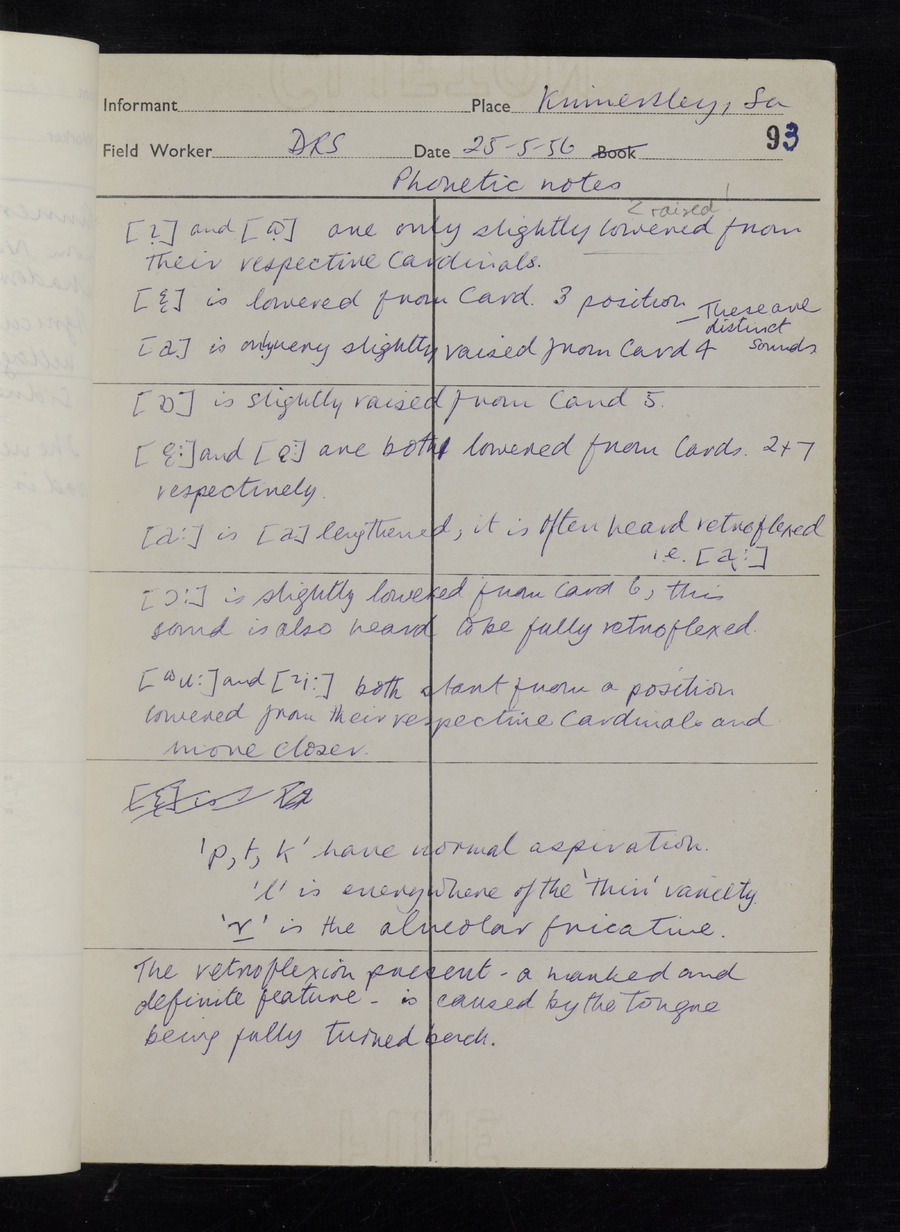 Informant Place Kinnersley, Sa
93
Field Worker DRS Date 25-5-56 Book
Phonetic notes
< raised!
and are only slightly lowered from
their respective Cardinals.
is lowered from Card. 3 position – These are
distinct
sounds
is only very slightly raised from Card 4
is slightly raised from Card 5.
and are both lowered from Cards. 2+7
respectively.
[a:] is [a] lengthened; it is often heard retroflexed
i.e.
[ɔ:] is slightly lowered from Card 6, this
sound is also heard to be fully retroflexed.
and both start from a position
lowered from their respective Cardinals and
move closer.
'p, t, k' have normal aspiration.
'l' is everywhere of the 'thin' variety.
'r' is the alveolar fricative.
The retroflexion present - a marked and
definite feature - is caused by the tongue
being fully turned back.